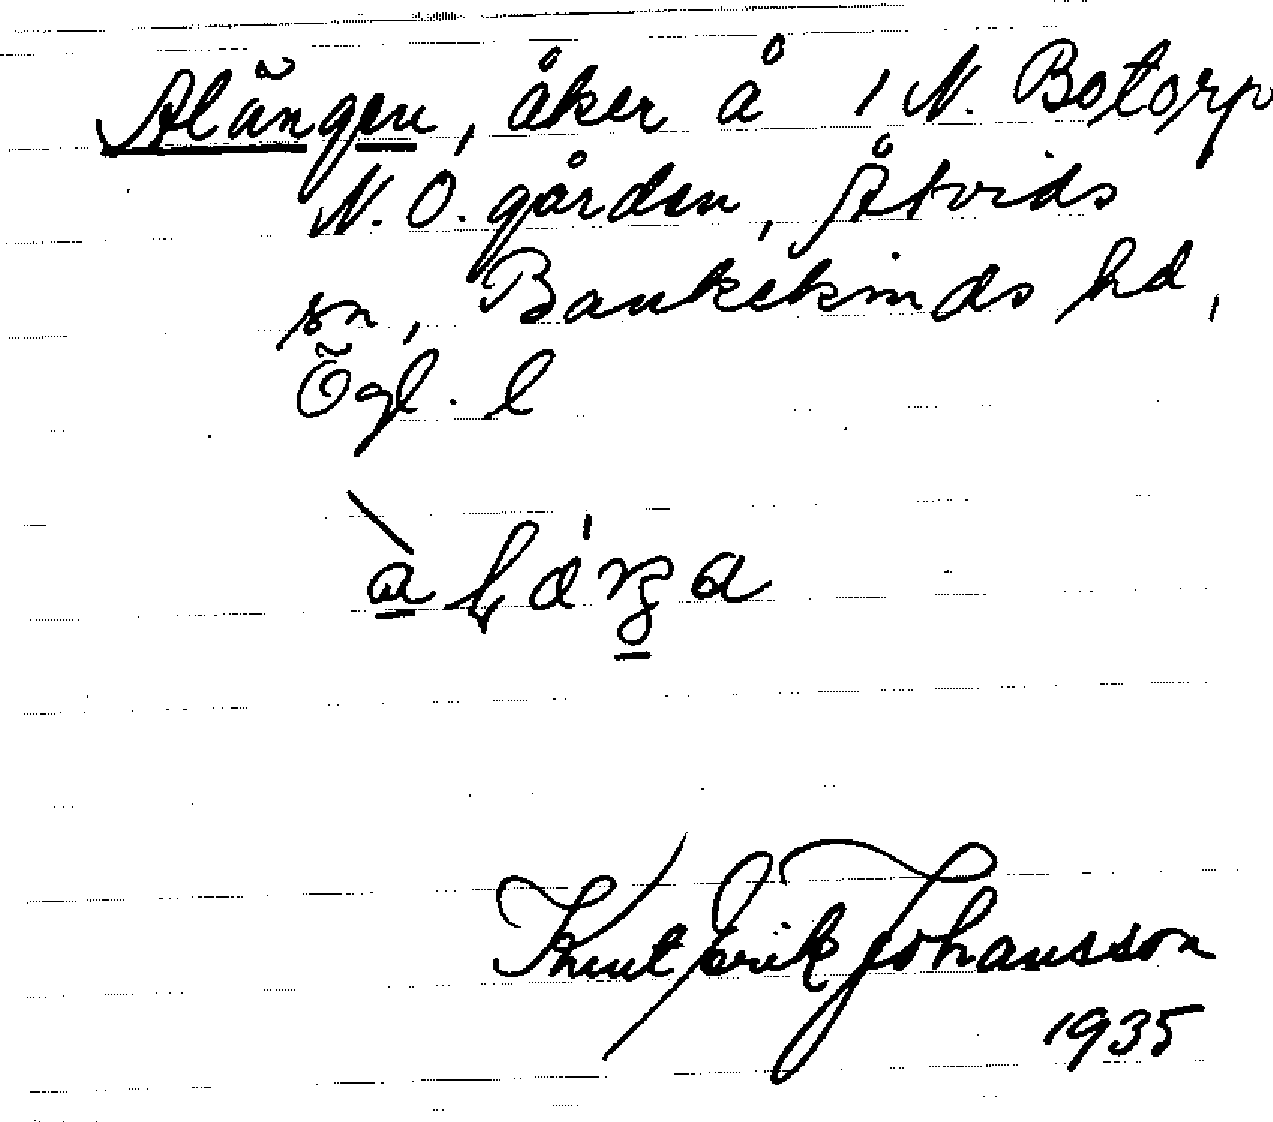 Alängen, åker å 1 N. Botorp
N. Ö. gården, Åtvids
sn, Bankekinds hd,
Ögl. l
Knut Erik Johansson
1935